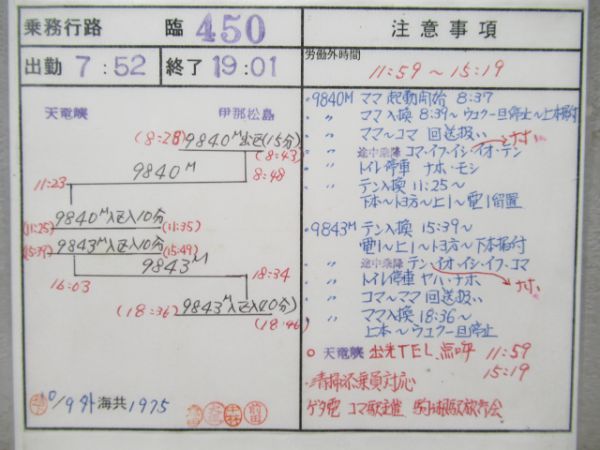 乗務行路 臨 450
出勤 7:52 終了 19:01
天竜峡 伊那松島
(8:28) 9840M出区(15分)
(8:43)
9840M
8:48
11:23
9840M入区入10分
(11:25) (11:35)
9843M入区入10分
(15:39) (15:49)
9843M
18:34
16:03
(18:36) 9843M入区入(10分)
(18:46)
10/9 外 海共1975
注意事項
労働外時間
11:59 ~ 15:19
・9840M ママ 起動開始 8:37
〃 ママ入換 8:39~ウェクー旦停止~上本据付
〃 ママ~コマ 回送扱い
〃 途中乗降 コマ・イフ・イシ・イオ・テン ナホ
〃 トイレ停車 ナホ・モシ
〃 テン入換 11:25~
下本~トヨ方~上1~電1留置
・9843M テン入換 15:39~
電1~上1~トヨ方~下本据付
〃 途中乗降 テン・イオ・イシ・イフ・コマ
〃 トイレ停車 ヤハ・ナホ ナホ
〃 コマ~ママ 回送扱い
〃 ママ入換 18:36~
上本~ウェクー旦停止
○ 天竜峡 出先TEL点呼 11:59
15:19
・清掃添乗員対応
ゲタ電 コマ駅主催 駒ヶ根駅旅行会